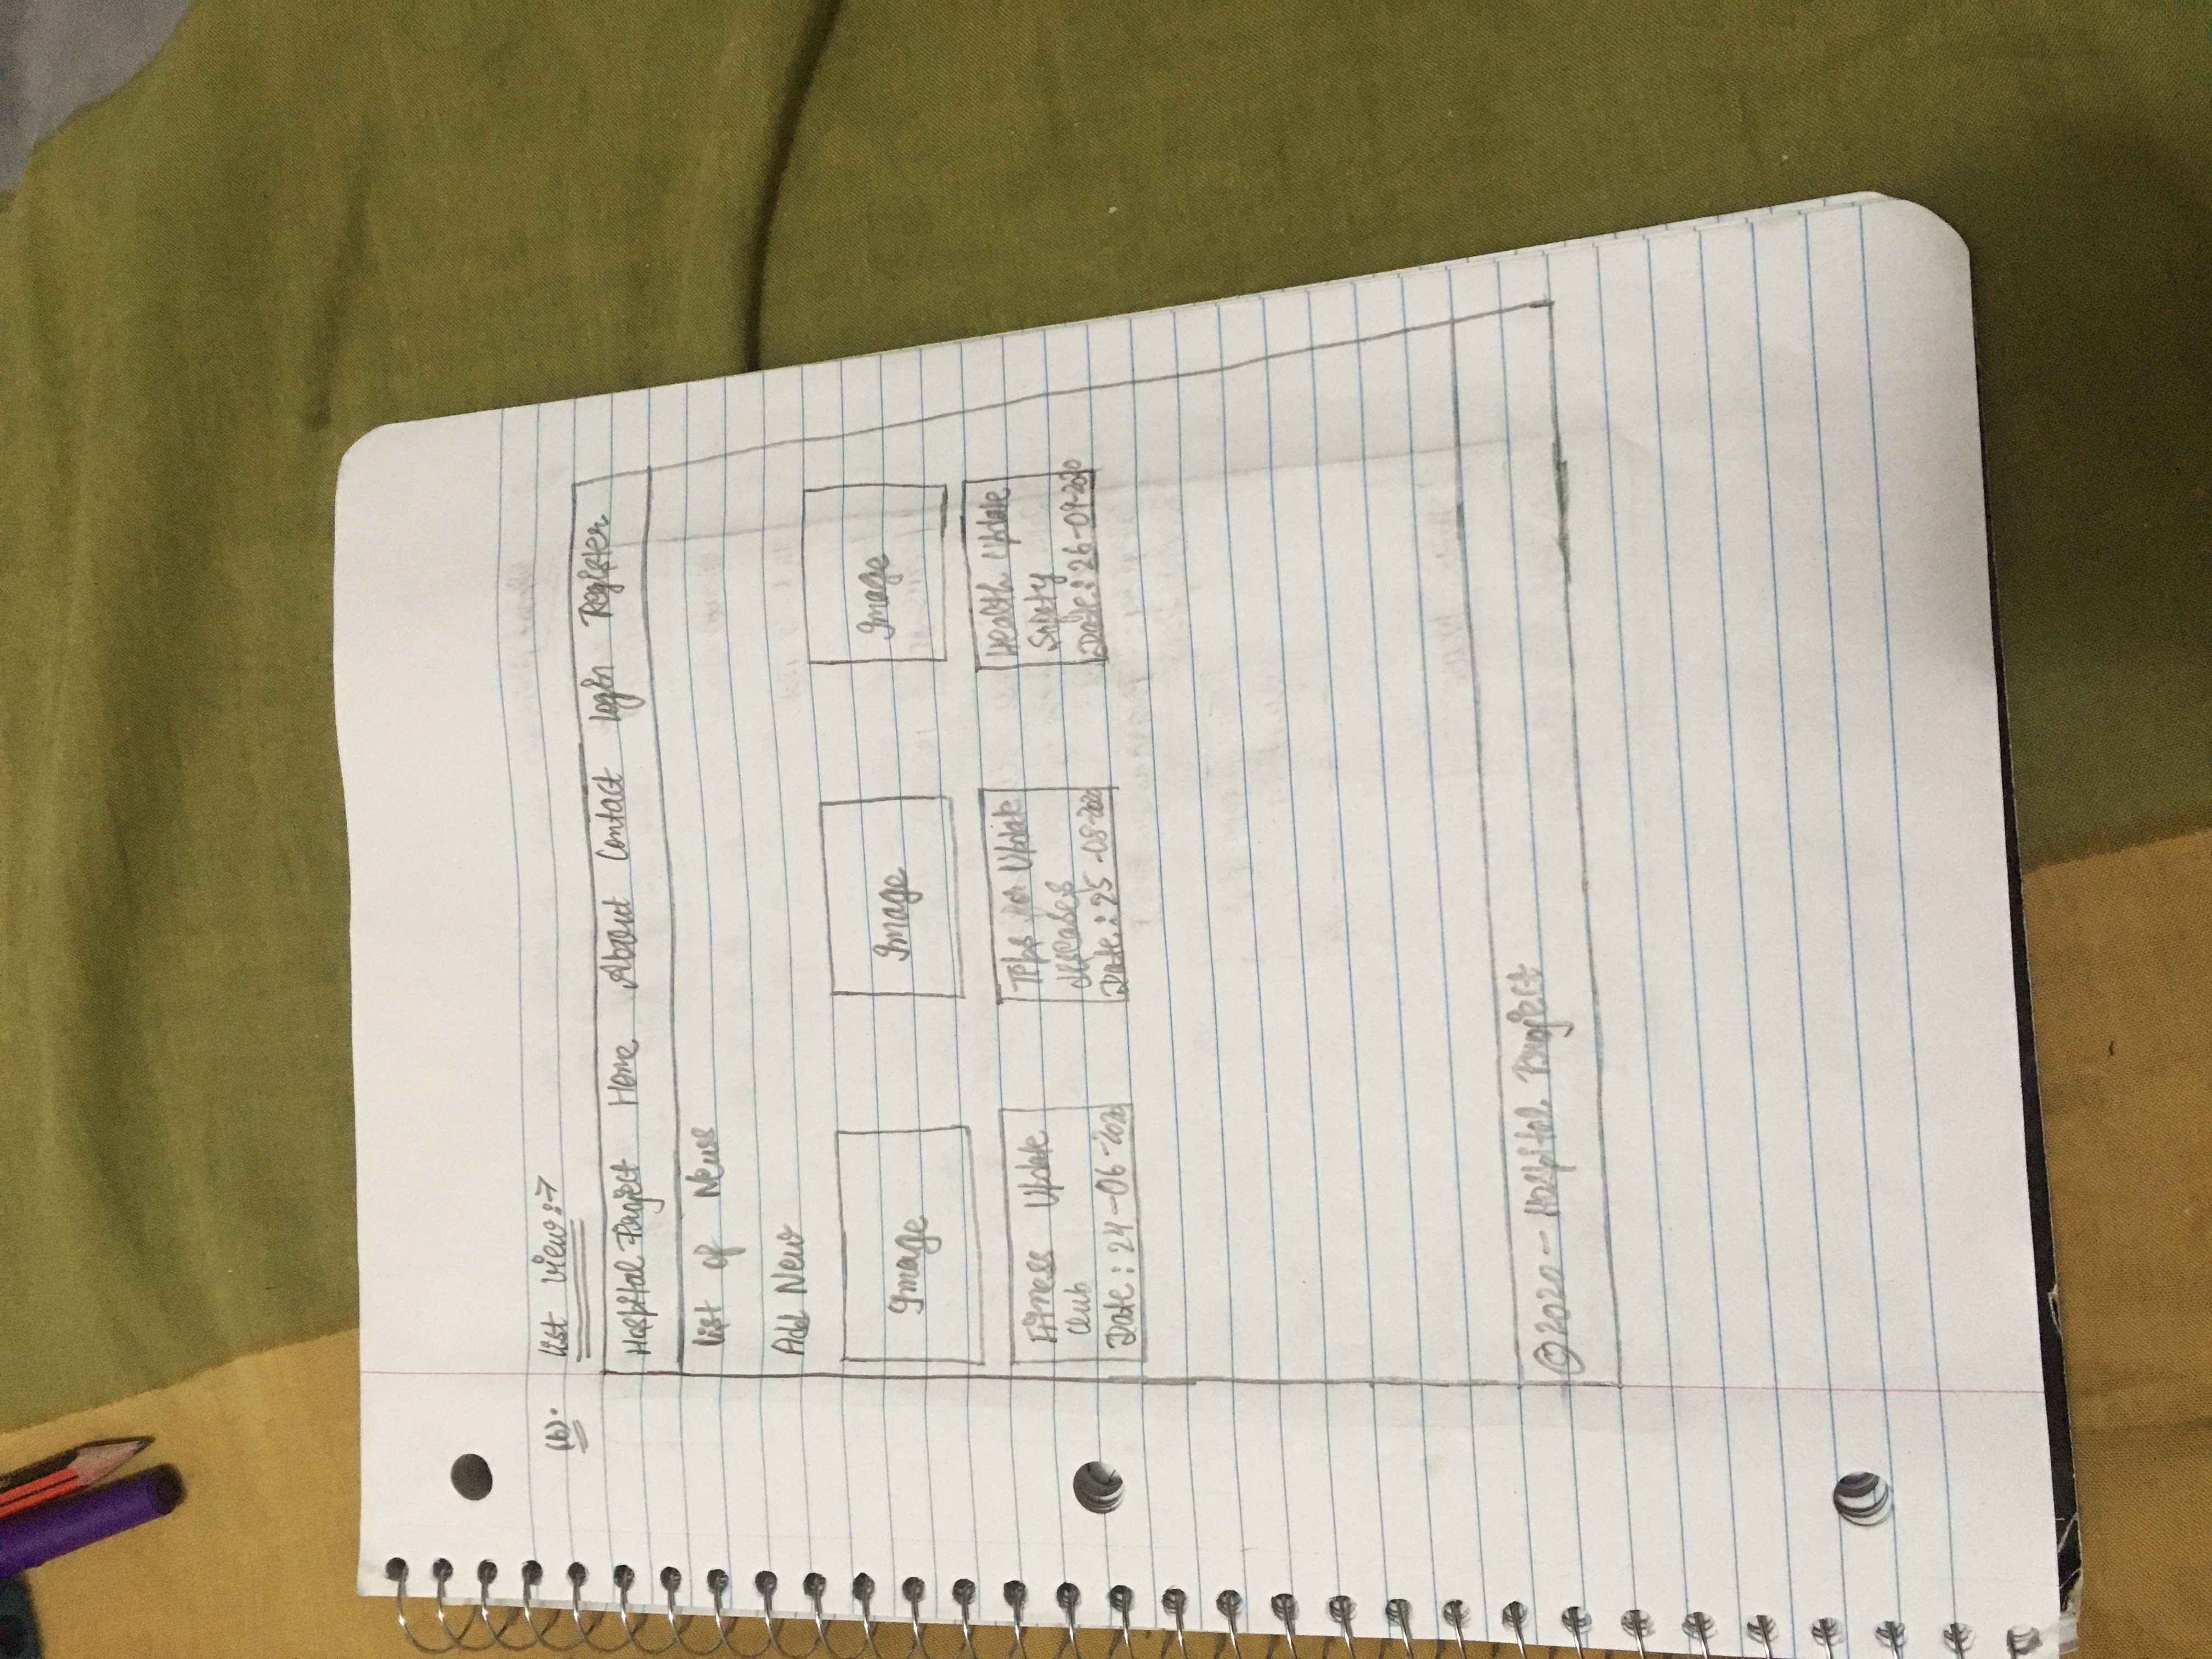 (b). List View:→
Hospital Project Home About Contact Login Register
List of News
Add New
Image Image Image
Fitness Update
Club
Date: 24-06-2020
Tips for Update
diseases
Date: 25-08-2020
Health Update
Safety
Date: 26-09-2020
©2020 - Hospital Project